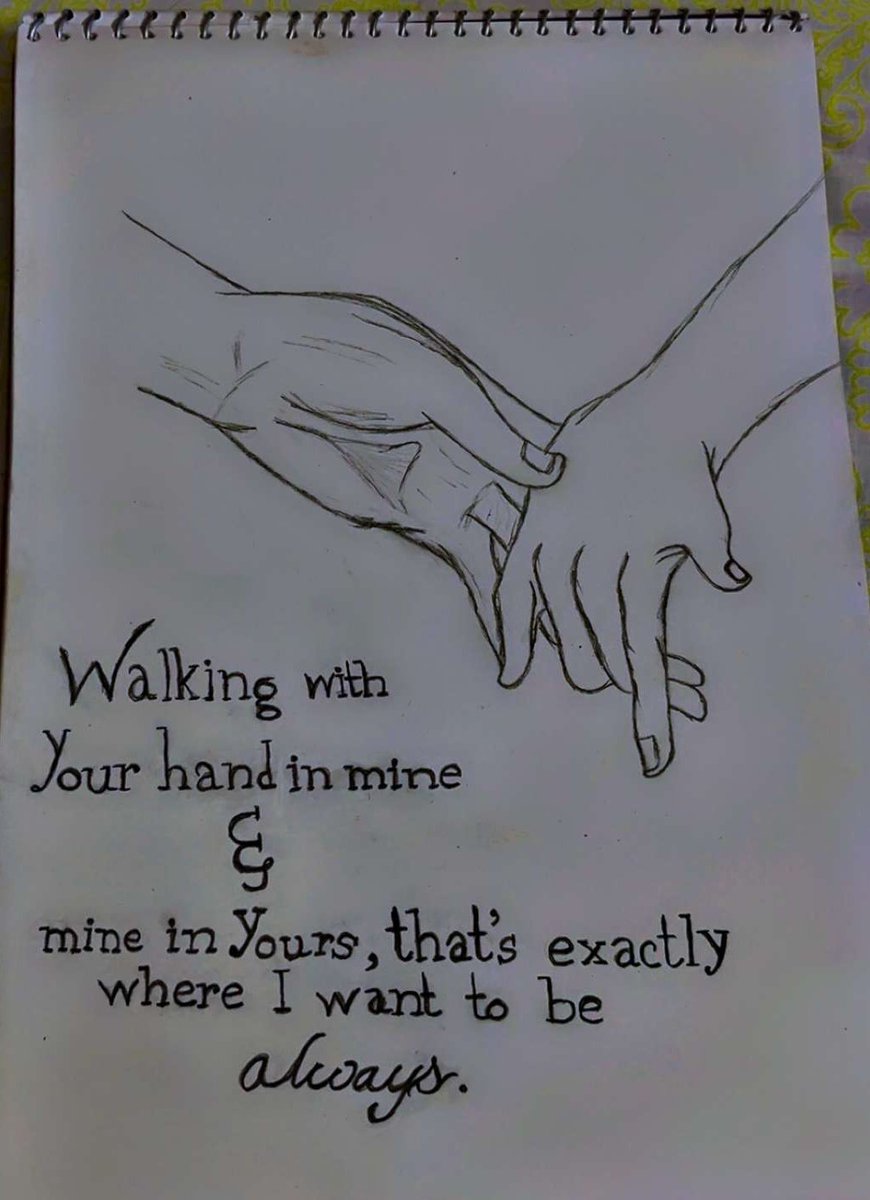 Walking with
Your hand in mine
&
mine in Yours, that's exactly
where I want to be
always.